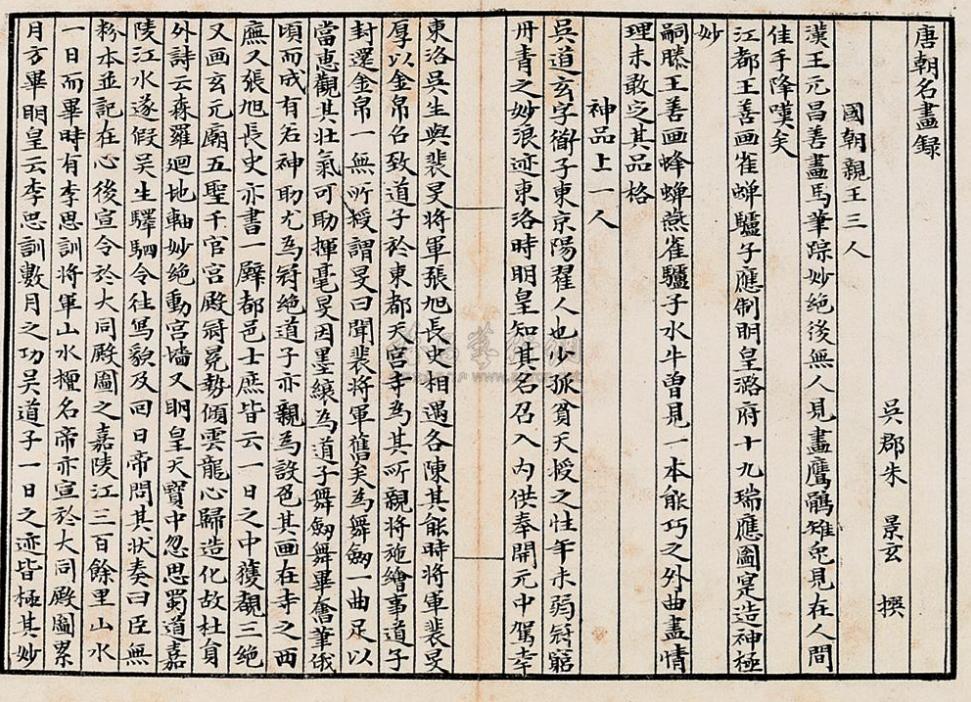 唐朝名畫録
吳郡朱 景玄 撰
國朝親王三人
漢王元昌善畫馬筆踪妙絶後無人見畫鷹鶻雉兔見在人間
佳手降嘆矣
江都王善畫雀蟬驢子應制明皇潞府十九瑞應圖寔造神極
妙
嗣滕王善画蜂蟬燕雀驢子水牛曽見一本能巧之外曲盡情
理未敢定其品格
神品上一人
吳道玄字衟子東京陽翟人也少孤貧天授之性年未弱冠窮
丹青之妙浪迹東洛時明皇知其名召入内供奉開元中駕幸
東洛吳生與裴旻将軍張旭長史相遇各陳其能時将軍裴旻
厚以金帛召致道子於東都天宮寺為其所親将施繪事道子
封還金帛一無所授謂旻曰聞裴将軍舊矣為舞劔一曲足以
當惠觀其壮氣可助揮毫旻因墨縗為道子舞劔舞畢奮筆俄
頃而成有若神助尤為冠絶道子亦親為設色其画在寺之西
廡又張旭長史亦書一壁都邑士庶皆云一日之中獲覩三絶
又画玄元廟五聖千官宮殿冠冕勢傾雲龍心歸造化故杜員
外詩云森羅迴地軸妙絶動宮墻又明皇天寶中忽思蜀道嘉
陵江水遂假吳生驛駟令往寫貌及囬日帝問其状奏曰臣無
粉本並記在心後宣令於大同殿圖之嘉陵江三百餘里山水
一日而畢時有李思訓将軍山水擅名帝亦宣於大同殿圖累
月方畢明皇云李思訓數月之功吳道子一日之迹皆極其妙